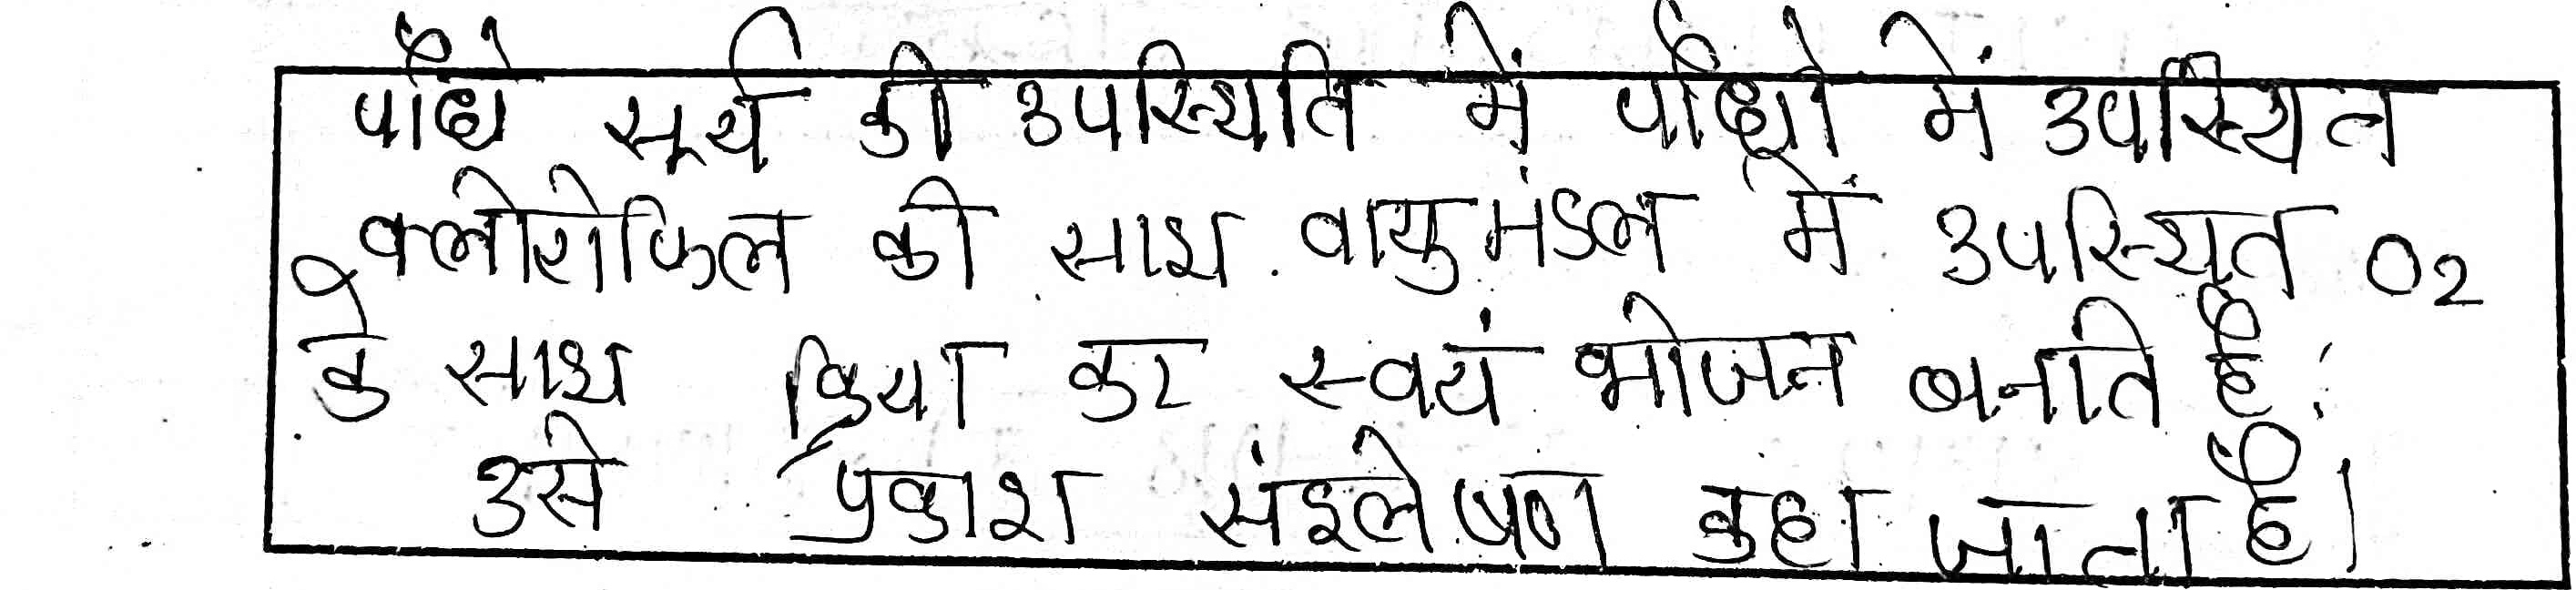 पौधे सूर्य की उपस्थिति में पौधो में उपस्थित
क्लोरोफिल की साथ वायुमंडल में उपस्थित O2
के साथ क्रिया कर स्वयं भोजन बनाते है।
उसे प्रकाश संश्लेषण कहा जाता है।